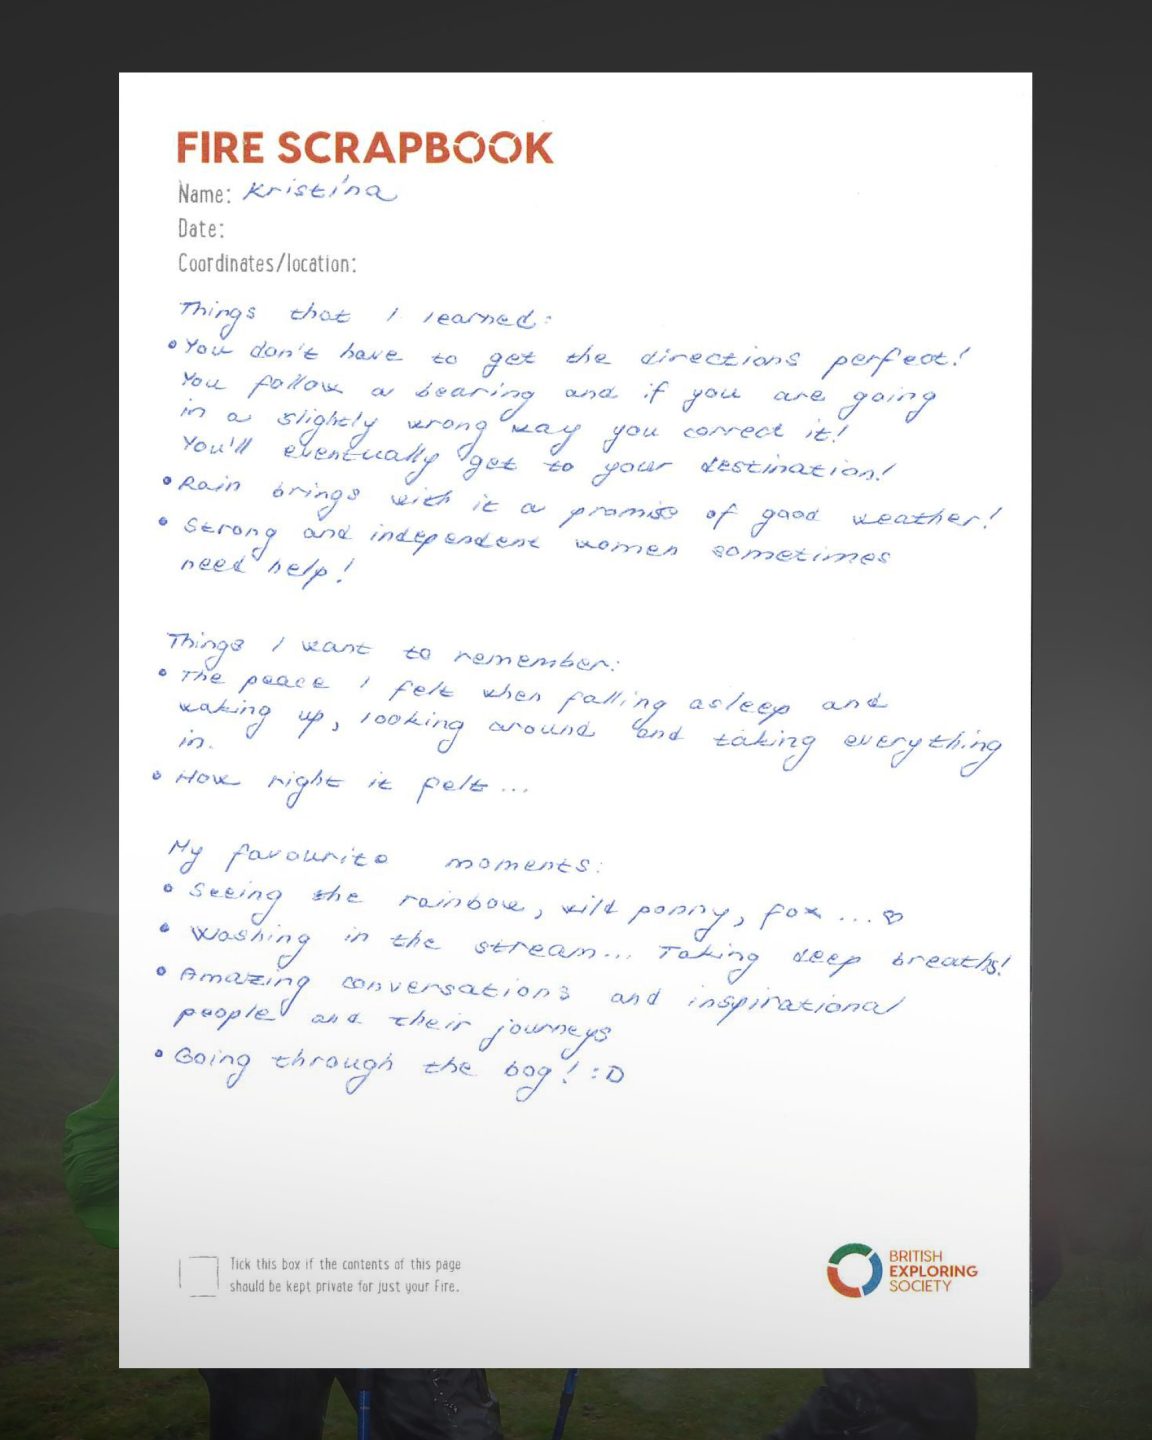 FIRE SCRAPBOOK
Name: Kristína
Date:
Coordinates/location:
Things that I learned:
• You don't have to get the directions perfect!
You follow a bearing and if you are going
in a slightly wrong way you correct it!
You'll eventually get to your destination!
• Rain brings with it a promise of good weather!
• Strong and independent women sometimes
need help!
Things I want to remember:
• The peace I felt when falling asleep and
waking up, looking around and taking everything
in.
• How right it felt...
My favourite moments:
• Seeing the rainbow, wild ponny, fox ... ♡
• Washing in the stream... Taking deep breaths!
• Amazing conversations and inspirational
people and their journeys
• Going through the bog! :D
Tick this box if the contents of this page
should be kept private for just your Fire.
BRITISH
EXPLORING
SOCIETY